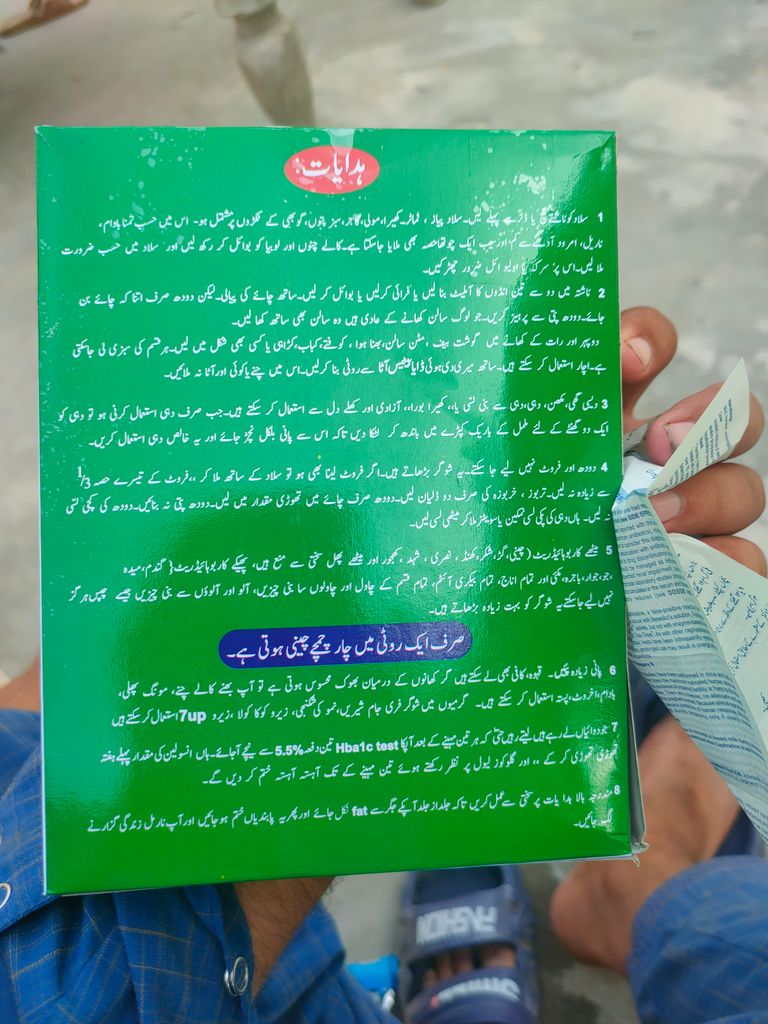 ہدایات:
1 سلاد کو ناشتے یا ڈنر سے پہلے لیں۔ سلاد پیاز، ٹماٹر، کھیرا، مولی، گاجر، سبز پتوں، گوبھی کے ٹکڑوں پر مشتمل ہو۔ اس میں حسب تمنا بادام،
ناریل، امرود آدھے سے کم اور سیب ایک چوتھا حصہ بھی ملایا جا سکتا ہے۔ کالے چنوں اور لوبیا کو بوائل کر رکھ لیں اور سلاد میں حسب ضرورت
ملا لیں۔ اس پر سرکہ یا اولیو ائل ضرور چھڑکیں۔
2 ناشتہ میں دو سے تین انڈوں کا آملیٹ بنا لیں یا فرائی کرلیں یا بوائل کر لیں۔ ساتھ چائے کی پیالی۔ لیکن دودھ صرف اتنا کہ چائے بن
جائے۔ دودھ پتی سے پرہیز کریں۔ جو لوگ سالن کھانے کے عادی ہیں وہ سالن بھی ساتھ کھا لیں۔
دوپہر اور رات کے کھانے میں گوشت بیف، مٹن سالن، بھنا ہوا، کوفتے، کباب، کڑاہی یا کسی بھی شکل میں لیں۔ ہر قسم کی سبزی لی جاسکتی
ہے۔ اچار استعمال کر سکتے ہیں۔ ساتھ میری دی ہوئی ڈایابیٹیس آٹا سے روٹی بنا کر لیں۔ اس میں چنے یا کوئی اور آٹا نہ ملائیں۔
3 دیسی گھی، مکھن، دہی، دہی سے بنی لسی یا،، کھیرا بورا،، آزادی اور کھلے دل سے استعمال کر سکتے ہیں۔ جب صرف دہی استعمال کرنی ہو تو دہی کو
ایک دو گھنٹے کے لئے ململ کے باریک کپڑے میں باندھ کر لٹکا دیں تاکہ اس سے پانی بلکل نچڑ جائے اور یہ خالص دہی استعمال کریں۔
4 دودھ اور فروٹ نہیں لیے جا سکتے۔ یہ شوگر بڑھاتے ہیں۔ اگر فروٹ لینا بھی ہو تو سلاد کے ساتھ ملا کر،، فروٹ کے تیسرے حصہ 1/3
سے زیادہ نہ لیں۔ تربوز، خربوزہ کی صرف دو ڈلیاں لیں۔ دودھ صرف چائے میں تھوڑی مقدار میں لیں۔ دودھ پتی نہ بنائیں۔ دودھ کی کچی لسی
نہ لیں۔ ہاں دہی کی پکی لسی نمکین یا سویٹنر ملا کر میٹھی لسی لیں۔
5 میٹھے کاربوہائیڈریٹ (چینی، گڑ، شکر، کھنڈ، مصری، شہد، کھجور اور میٹھے پھل سختی سے منع ہیں، پھیکے کاربوہائیڈریٹ{ گندم، میدہ
،جو، جوار، باجرہ، مکئی اور تمام اناج، تمام بیکری آئٹم، تمام قسم کے چاول اور چاولوں سا بنی چیزیں، آلو اور آلوؤں سے بنی چیزیں جیسے چپس ہر گز
نہیں لیے جاسکتے یہ شوگر کو بہت زیادہ بڑھاتے ہیں۔
صرف ایک روٹی میں چار چمچے چینی ہوتی ہے۔
6 پانی زیادہ پئیں۔ قہوہ، کافی بھی لے سکتے ہیں گر کھانوں کے درمیان بھوک محسوس ہوتی ہے تو آپ بھنے کالے چنے، مونگ پھلی،
بادام، اخروٹ، پستہ استعمال کر سکتے ہیں۔ گرمیوں میں شوگر فری جام شیریں، نمو کی شکنجبی، زیرو کوکا کولا، زیرو 7up استعمال کر سکتے ہیں
7 جو دوائیاں لے رہے ہیں لیتے رہیں حتٰی کہ ہر تین مہینے کے بعد آپکا Hba1c test تین دفعہ 5.5% سے نیچے آ جائے۔ ہاں انسولین کی مقدار پہلے ہفتہ
تھوڑی تھوڑی کر کے،، اور گلوکوز لیول پر نظر رکھتے ہوئے تین مہینے کے تک آہستہ آہستہ ختم کر دیں گے۔
8 مندرجہ بالا ہدایات پر سختی سے عمل کریں تاکہ جلد از جلد آپکے جگر سے fat نکل جائے اور پھر یہ پابندیاں ختم ہو جائیں اور آپ نارمل زندگی گزارنے
لگ جائیں۔
FASHION